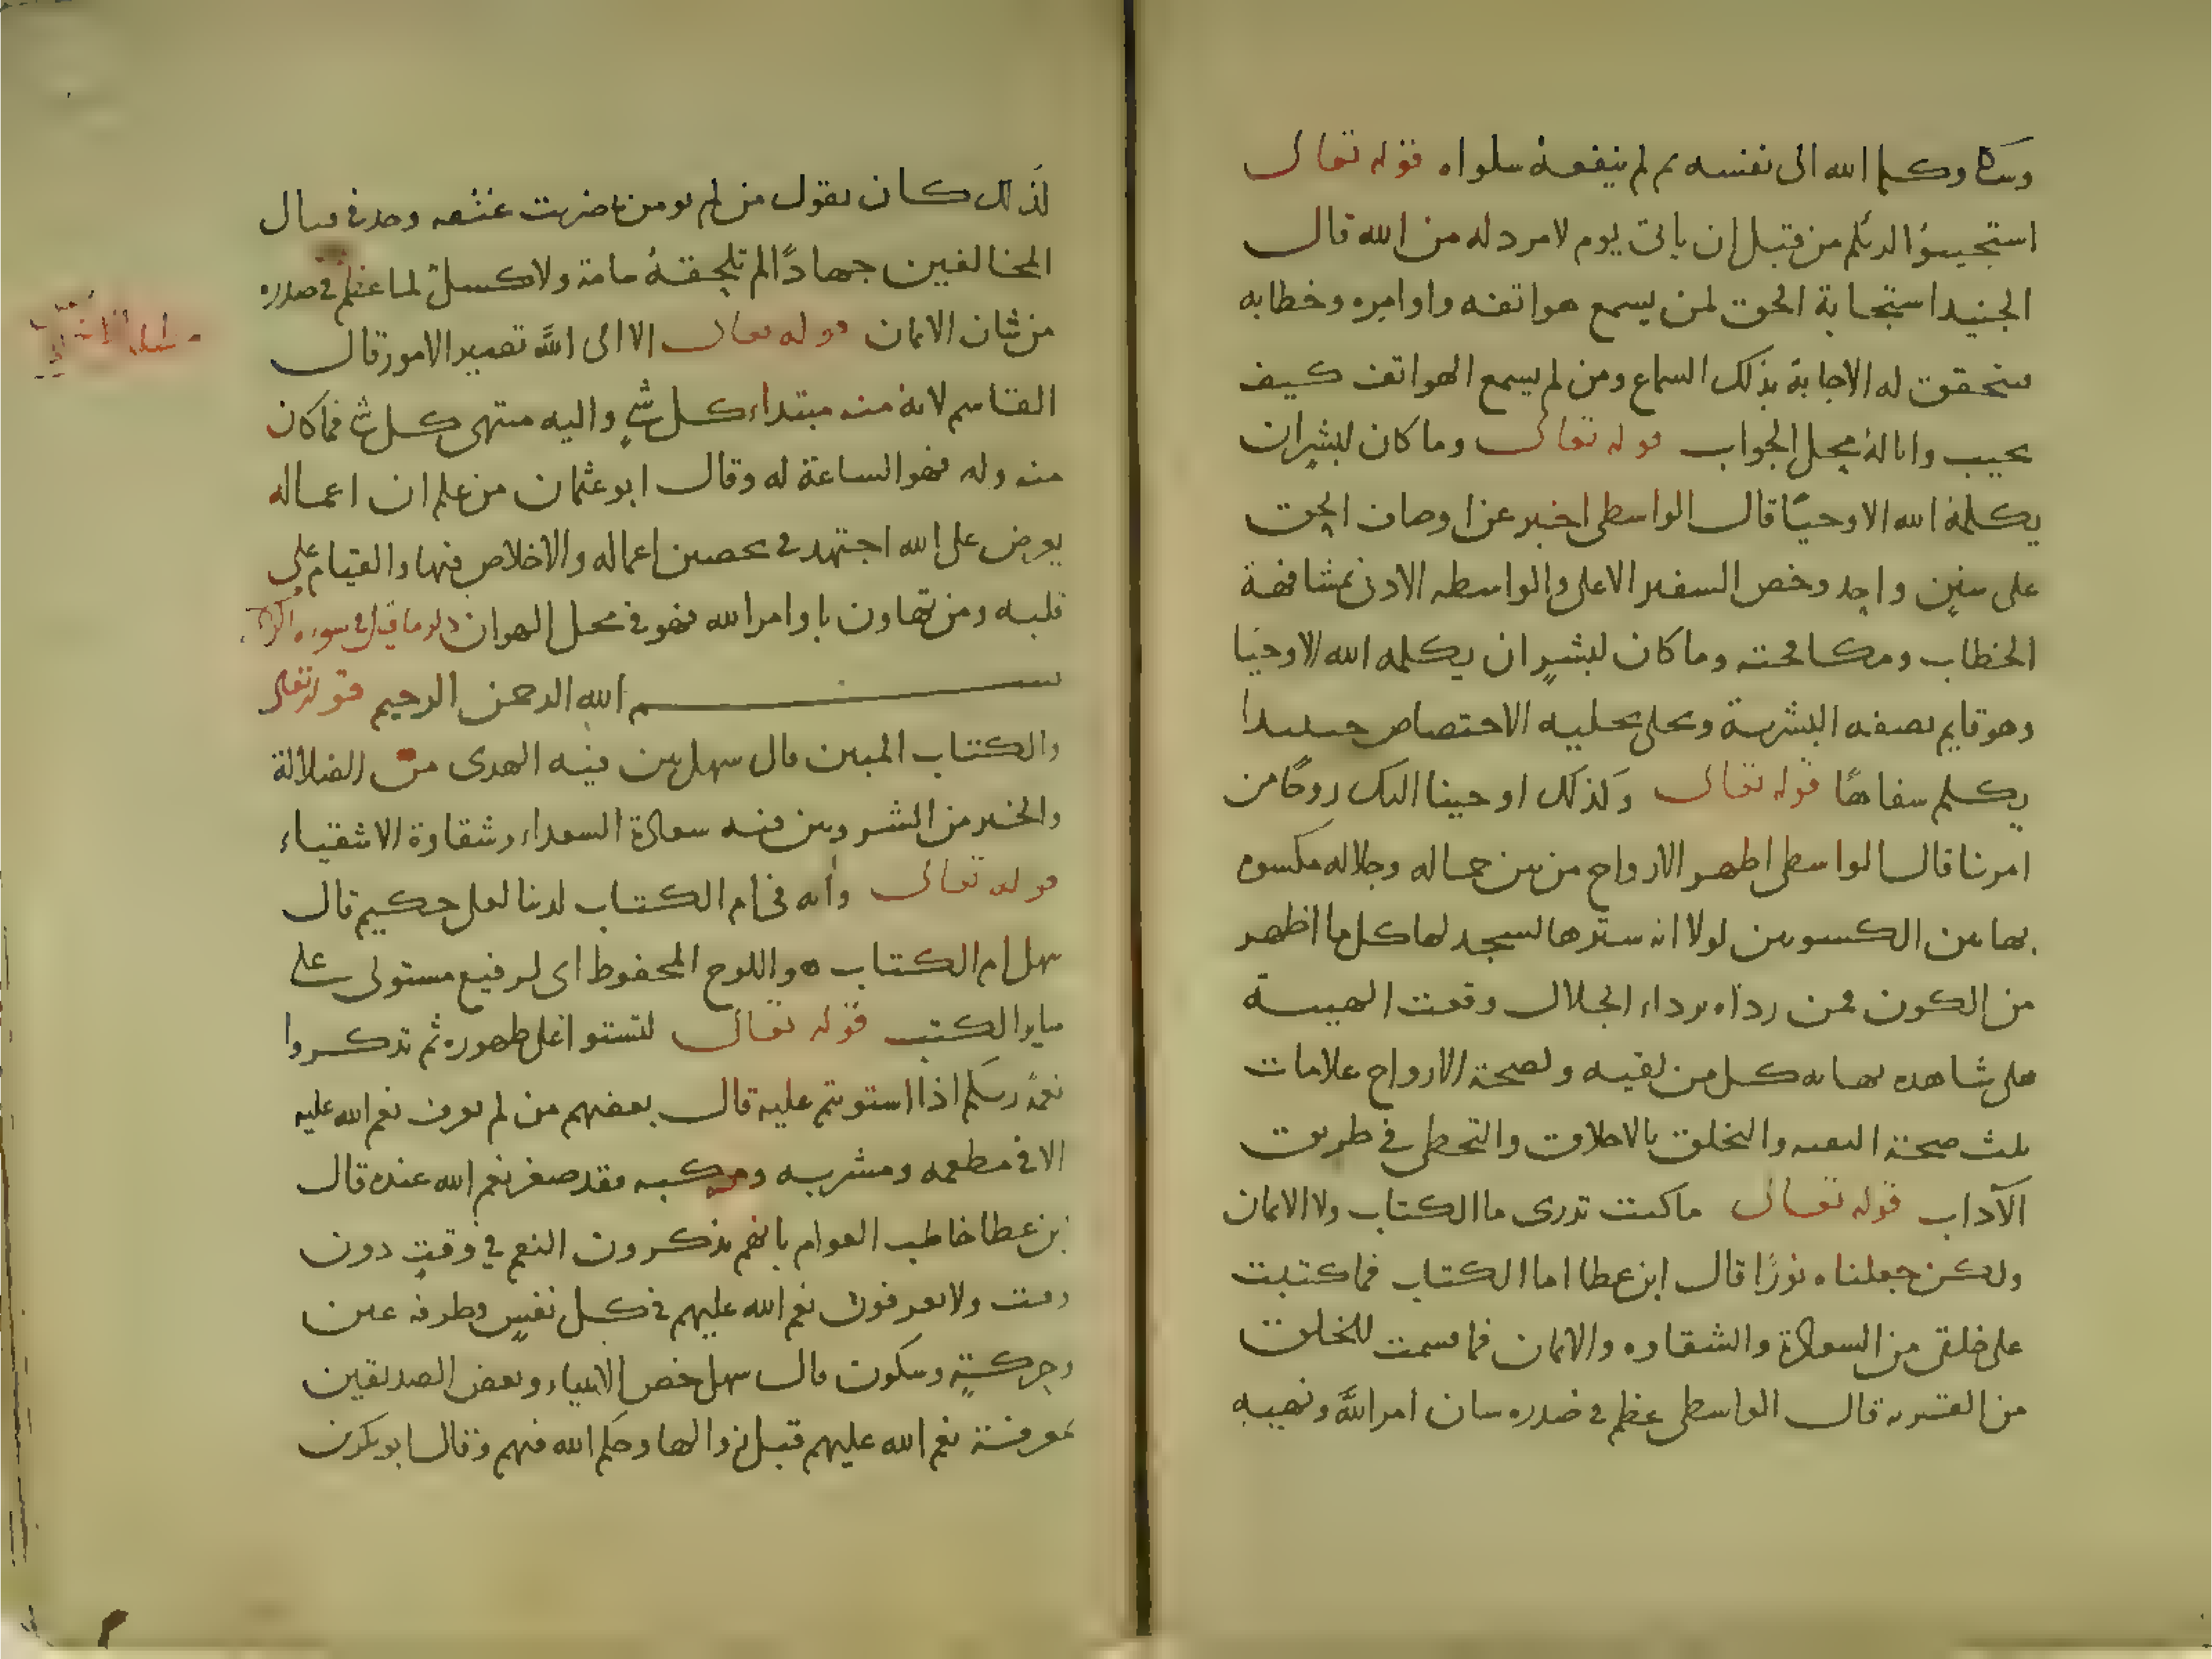 وكله الله الى نفسه ثم لم ينفعه سلواه قوله تعالى
استجيبوا لربكم من قبل ان ياتى يوم لا مرد له من الله قال
الجنيد استجابة الحق لمن يسمع هواتفه واوامره وخطابه
فتحققت له الاجابة بذلك السماع ومن لم يسمع الهواتف كيف
يجيب وانا له محل الجواب قوله تعالى وما كان لبشر ان
يكلمه الله الا وحيا قال الواسطى اخبر عن اوصاف الحق
على سنن واحد وخص السفير الاعلى والواسطه الادنى بمشافهة
الخطاب ومكافحته وما كان لبشر ان يكلمه الله الا وحيا
وهو قايم بصفه البشرية وتحلى بحليه الاختصاص
يكلم شفاها قوله تعالى وكذلك اوحينا اليك روحا من
امرنا قال الواسطى اظهر الارواح من بين جماله وجلاله مكسوه
بها بين الكسوتين لولا انه سترها لسجد لها كل ما اظهر
من الكون فمن رداه برداء الجلال وقعت الهيبة
على شاهده يهابه كل من لقيه ولصحة الارواح علامات
ثلث صحة والتخلق بالاخلاق والتخطى فى طريق
الآداب قوله تعالى ما كنت تدرى ما الكتاب ولا الايمان
ولكن جعلناه نورا قال ابن عطا اما الكتاب فما كتبت
على خلقى من السعادة والشقاوه والايمان فما قسمت للخلق
من القربه قال الواسطى عظم فى صدره شان امر الله ونهيه
لذلك كان يقول من لم يومن ضربت عنقه وجد فى قتال
المخالفين جهادا لم تلحقه سامة ولا كسل لما عظم فى صدره
من شان الايمان قوله تعالى الا الى الله تصير الامور قال
القاسم لانه منه مبتداء كل شي واليه منتهى كل شي فما كان
منه وله فهو الساعة له وقال ابو عثمان من علم ان اعماله
يعرض على الله اجتهد فى تحصين اعماله والاخلاص فيها والقيام على
قلبه ومن تهاون باوامر الله فهو فى محل الهوان ذكر ما قيل فى سوره
بسم الله الرحمن الرحيم قوله تعالى
والكتاب المبين قال سهل بين فيه الهدى من الضلالة
والخير من الشر وبين فيه سعادة السعداء وشقاوة الاشقياء
قوله تعالى وانه فى ام الكتاب لدينا لعلى حكيم قال
سهل ام الكتاب هو اللوح المحفوظ اى لرفيع مستولى على
ساير الكتب قوله تعالى لتستوا على ظهوره ثم تذكروا
نعمة ربكم اذا استويتم عليه قال بعضهم من لم يعرف نعم الله عليه
الا فى مطعمه ومشربه ومركبه فقد صغر نعم الله عنده قال
ابن عطا خاطب العوام بانهم يذكرون النعم فى وقت دون
وقت ولا يعرفون نعم الله عليهم فى كل نفس وطرفه عين
وحركة وسكون قال سهل خص الانبياء وبعض الصديقين
بمعرفة نعم الله عليهم قبل زوالها وحلم الله فيهم وقال ابو بكر بن